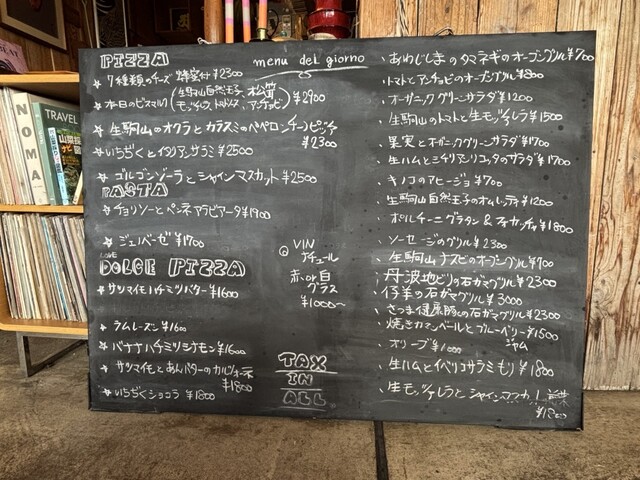 PIZZA
menu del giorno
★ 7種類のチーズ 蜂蜜付 ¥2300
★ 本日のビスマルク(生駒山自然王子、松茸
モッツァレラ、トマトソース、アンチョビ) ¥2900
★ 生駒山のオクラとカラスミのペペロンチーノピッツァ
¥2300
★ いちぢくとイタリアンサラミ ¥2500
★ ゴルゴンゾーラとシャインマスカット ¥2500
PASTA
★ チョリソーとペンネアラビアータ ¥1900
★ ジェノベーゼ ¥1700
LOVE
DOLCE PIZZA
★ サツマイモハチミツバター ¥1600
★ ラムレーズン ¥1600
★ バナナハチミツシナモン ¥1600
★ サツマイモとあんバターのカルツォーネ
¥1800
★ いちぢくショコラ ¥1800
VIN
ナチュール
赤or白
グラス
¥1000~
TAX
IN
ALL
、あわじしまのタマネギのオーブングリル ¥700
、トマトとアンチョビのオーブングリル ¥800
、オーガニックグリーンサラダ ¥1200
、生駒山のトマトと生モッツァレラ ¥1500
、果実とオーガニックグリーンサラダ ¥1700
、生ハムとシチリアンリコッタのサラダ ¥1700
、キノコのアヒージョ ¥700
、生駒山自然王子のオムレッティ ¥1200
、ポルチーニグラタン&フォカッチャ ¥1800
、ソーセージのグリル ¥2300
、生駒山ナスビのオーブングリル ¥700
、丹波地どりの石ガマグリル ¥2300
、仔羊の石ガマグリル ¥3000
、さつま健康豚の石ガマグリル ¥2300
、焼きカマンベールとブルーベリージャム ¥1500
、オリーブ ¥1000
、生ハムとイベリコサラミもり ¥1800
、生モッツァレラとシャインマスカット
¥1800
NOMA
TRAVEL